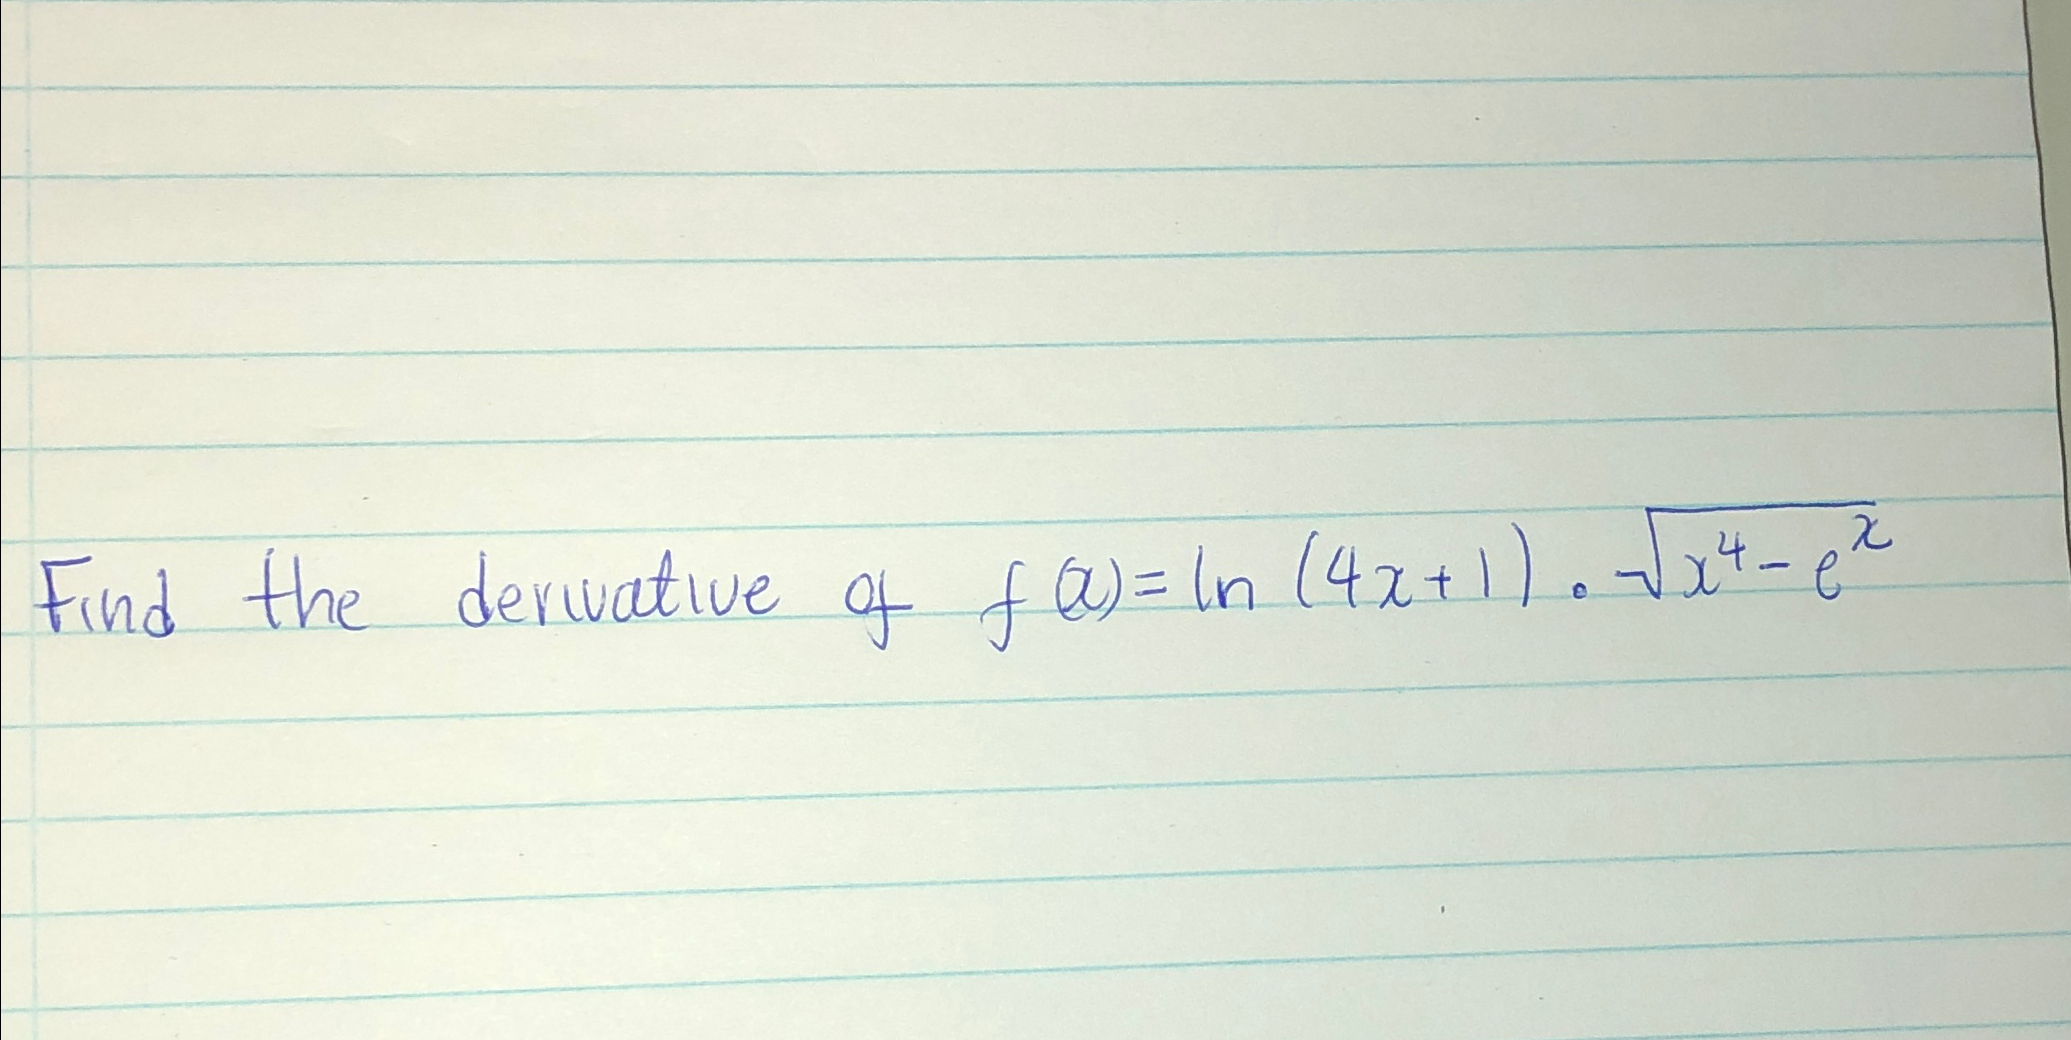 Find the derivative of f(x) = ln (4x+1) . √(x⁴ - eˣ)